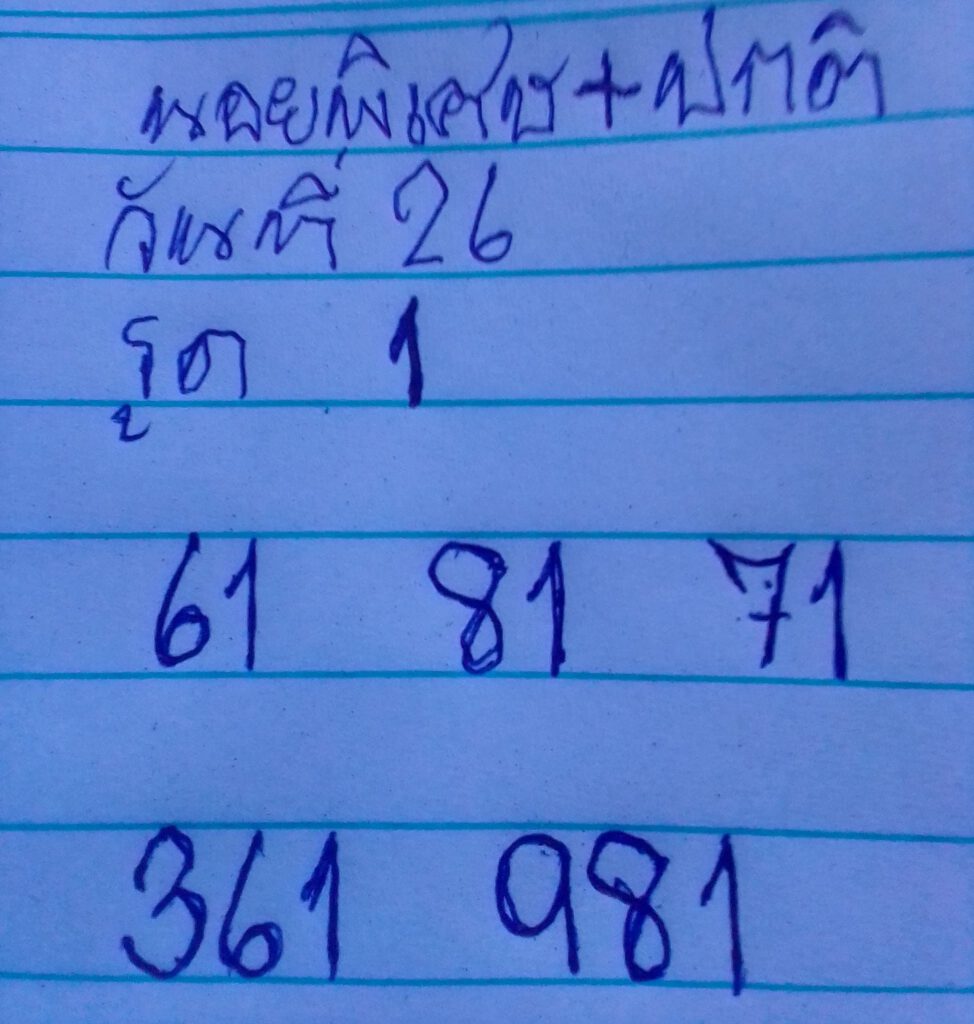 นอยพิเศษ+ปกติ
วันที่ 26
รูด 1
61 81 71
361 981